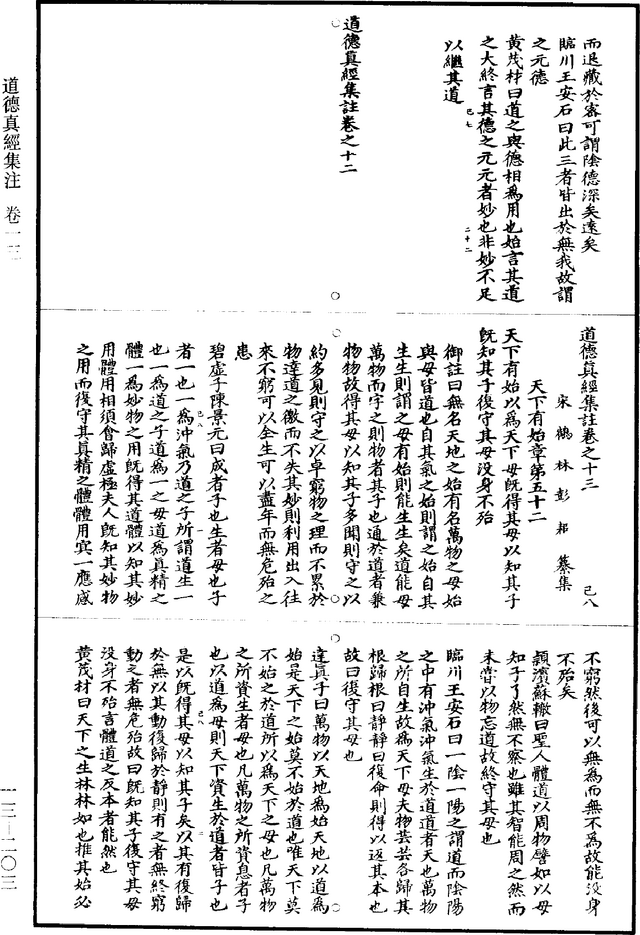 而退藏於密可謂陰德深矣遠矣
臨川王安石曰此三者皆出於無我故謂
之元德
黃茂材曰道之與德相為用也始言其道
之大終言其德之元元者妙也非妙不足
以繼其道
己七
二十二
道德真經集註卷之十二
道德真經集註卷之十三
己八
宋鶴林彭耜纂集
天下有始章第五十二
天下有始以為天下母既得其母以知其子
既知其子復守其母没身不殆
御註曰無名天地之始有名萬物之母始
與母皆道也自其氣之始則謂之始自其
生生則謂之母有始則能生生矣道能母
萬物而字之則物者其子也通於道者兼
物物故得其母以知其子多聞則守之以
約多見則守之以卓窮物之理而不累於
物達道之徼而不失其妙則利用出入往
來不窮可以全生可以盡年而無危殆之
患
碧虛子陳景元曰成者子也生者母也子
者一也一為沖氣乃道之子所謂道生一
也一為道之子道為一之母道為真精之
體一為妙物之用既得其道體以知其妙
用體用相須會歸虛極夫人既知其妙物
之用而復守其真精之體體用冥一應感
己八
一
不窮然後可以無為而無不為故能没身
不殆矣
穎濱蘇轍曰聖人體道以周物譬如以母
知子了然無不察也雖其智能周之然而
未嘗以物忘道故終守其母也
臨川王安石曰一陰一陽之謂道而陰陽
之中有沖氣沖氣生於道道者天也萬物
之所自生故為天下母夫物芸芸各歸其
根歸根曰靜靜曰復命則得以返其本也
故曰復守其母也
達真子曰萬物以天地為始天地以道為
始是天下之始莫不始於道也唯天下莫
不始之於道所以為天下之母也凡萬物
之所資生者母也凡萬物之所資息者子
也以道為母則天下資生於道者皆子也
是以既得其母以知其子矣以其有復歸
於無以其動復歸於靜則有之者無終窮
動之者無危殆故曰既知其子復守其母
没身不殆言體道之反本者能然也
黃茂材曰天下之生林林如也推其始必
己八
道德真經集注　卷一三
一三—二〇三